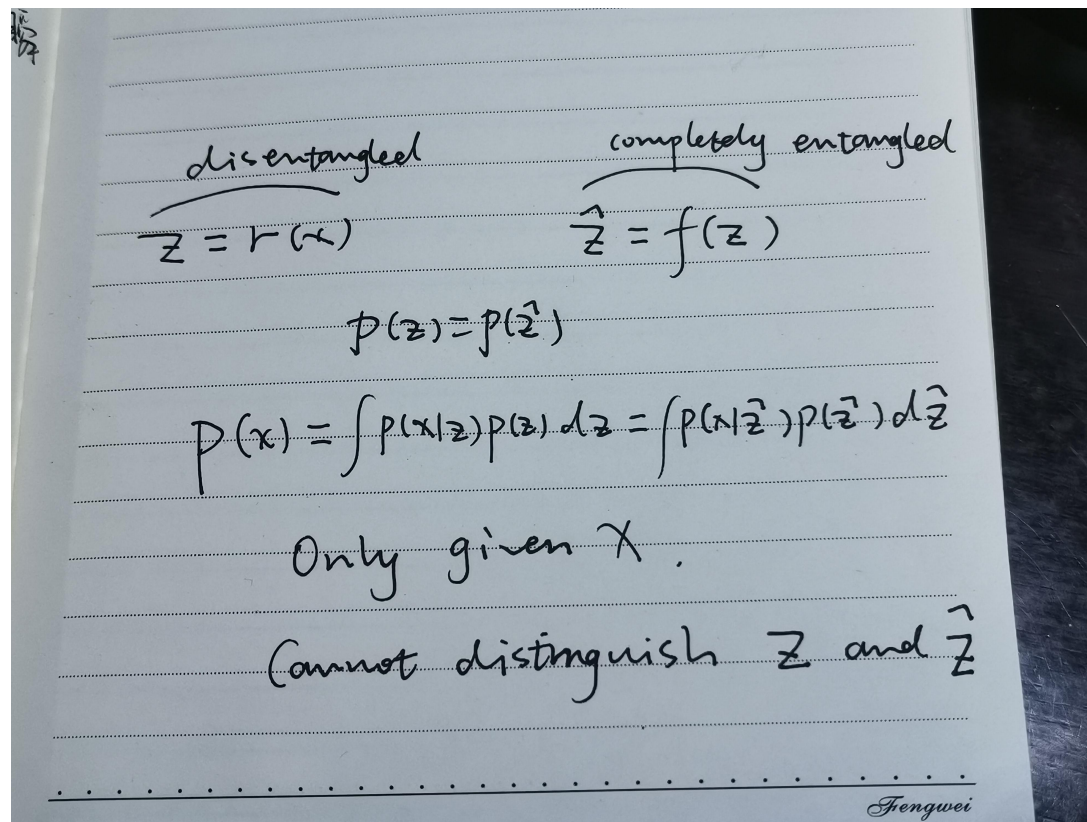 disentangled completely entangled
z = r(x) ẑ = f(z)
p(z)=p(ẑ)
p(x) = ∫p(x|z)p(z)dz = ∫p(x|ẑ)p(ẑ)dẑ
Only given X.
Cannot distinguish Z and Ẑ
Fengwei